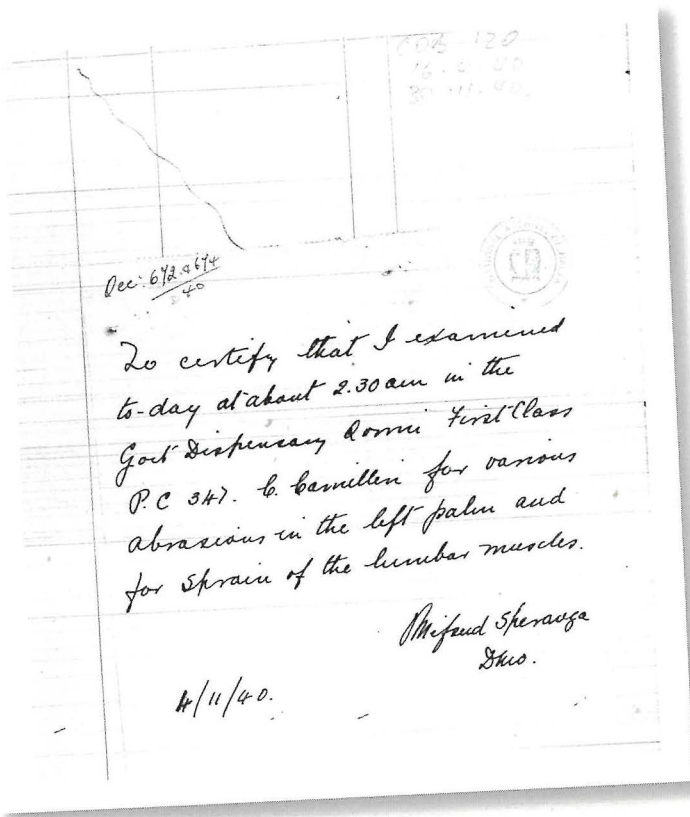 COB 120
Dec: 672 & 674
40
To certify that I examined
to-day at about 2.30 am in the
Govt Dispensary Qormi First Class
P.C 347. C. Camilleri for various
abrasions in the left palm and
for sprain of the lumbar muscles.
Mifsud Speranza
DMO.
4/11/40.